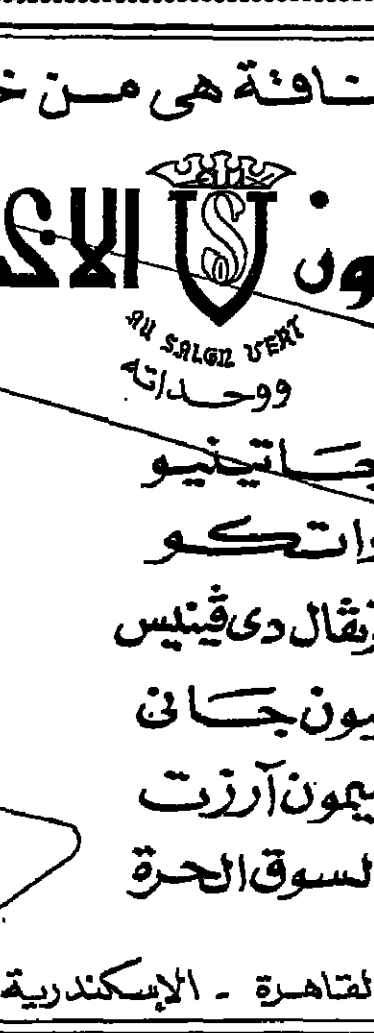 هى مـن
ون الاخ
AU SALON VERT
ووحـداته
جـاتينيو
اتكـو
دى ڤينيس
ون جـانى
يمون آرزت
لسوق الحرة
لقاهرة - الإسكندرية